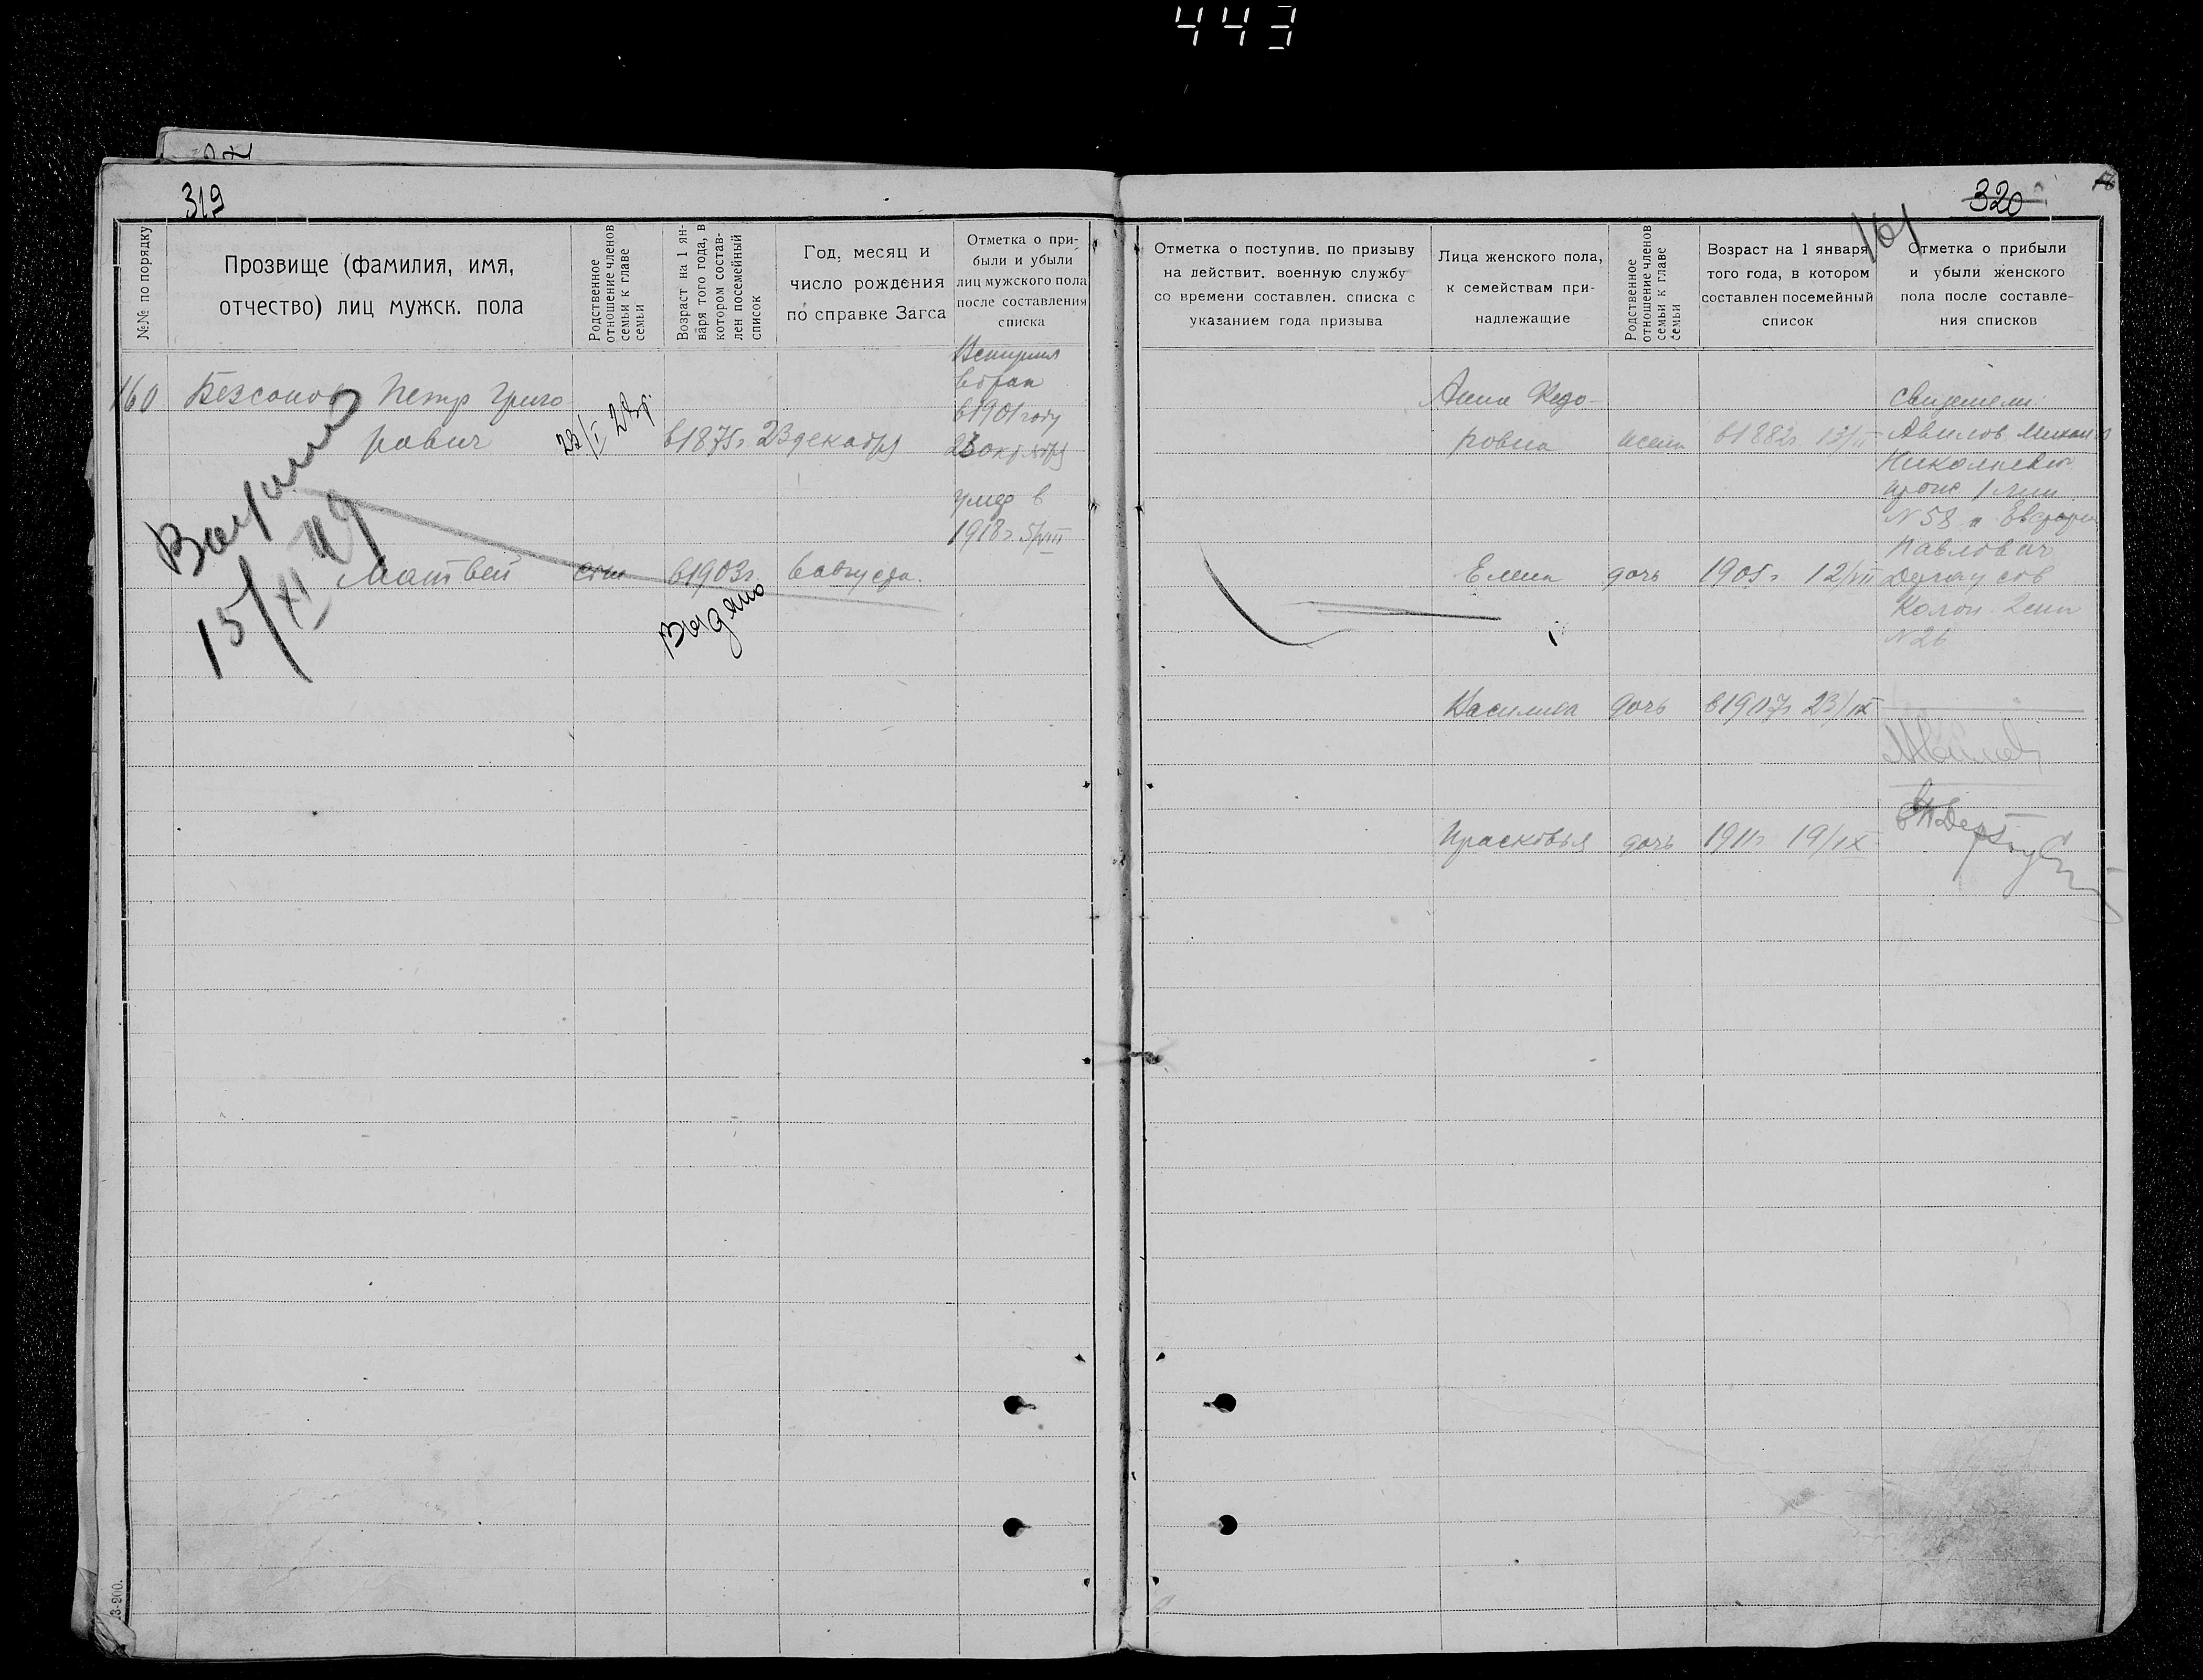 443
319
№№ по порядку
Прозвище (фамилия, имя,
отчество) лиц мужск. пола
Родственное
отношение членов
семьи к главе
семьи
Возраст на 1 ян-
варя того года, в
котором состав-
лен посемейный
список
Год, месяц и
число рождения
по справке Загса
Отметка о при-
были и убыли
лиц мужского пола
после составления
списка
Вступил
в брак
в 1901 году
160 Безсонов Петр Григо
рович
23/I 28г.
в 1875г 23 декабря
23 октября
умер в
1918г. 5/VIII
15/XI 29
Матвей сын в 1903г. 6 августа.
Выдано
3-200.
320
161
Отметка о поступив. по призыву
на действит. военную службу
со времени составлен. списка с
указанием года призыва
Лица женского пола,
к семействам при-
надлежащие
Родственное
отношение членов
семьи к главе
семьи
Возраст на 1 января
того года, в котором
составлен посемейный
список
Отметка о прибыли
и убыли женского
пола после составле-
ния списков
Анна Федо-
ровна жена в 1882г 13/II
свидетели:
Авилов Михаил
Николаевич
1 лин
N 58 и
Павлович
Елена дочь 1905г 12/VII
2 лин
N 26
Василиса дочь в 1907г 23/IX
Прасковья дочь 1911г 19/IX